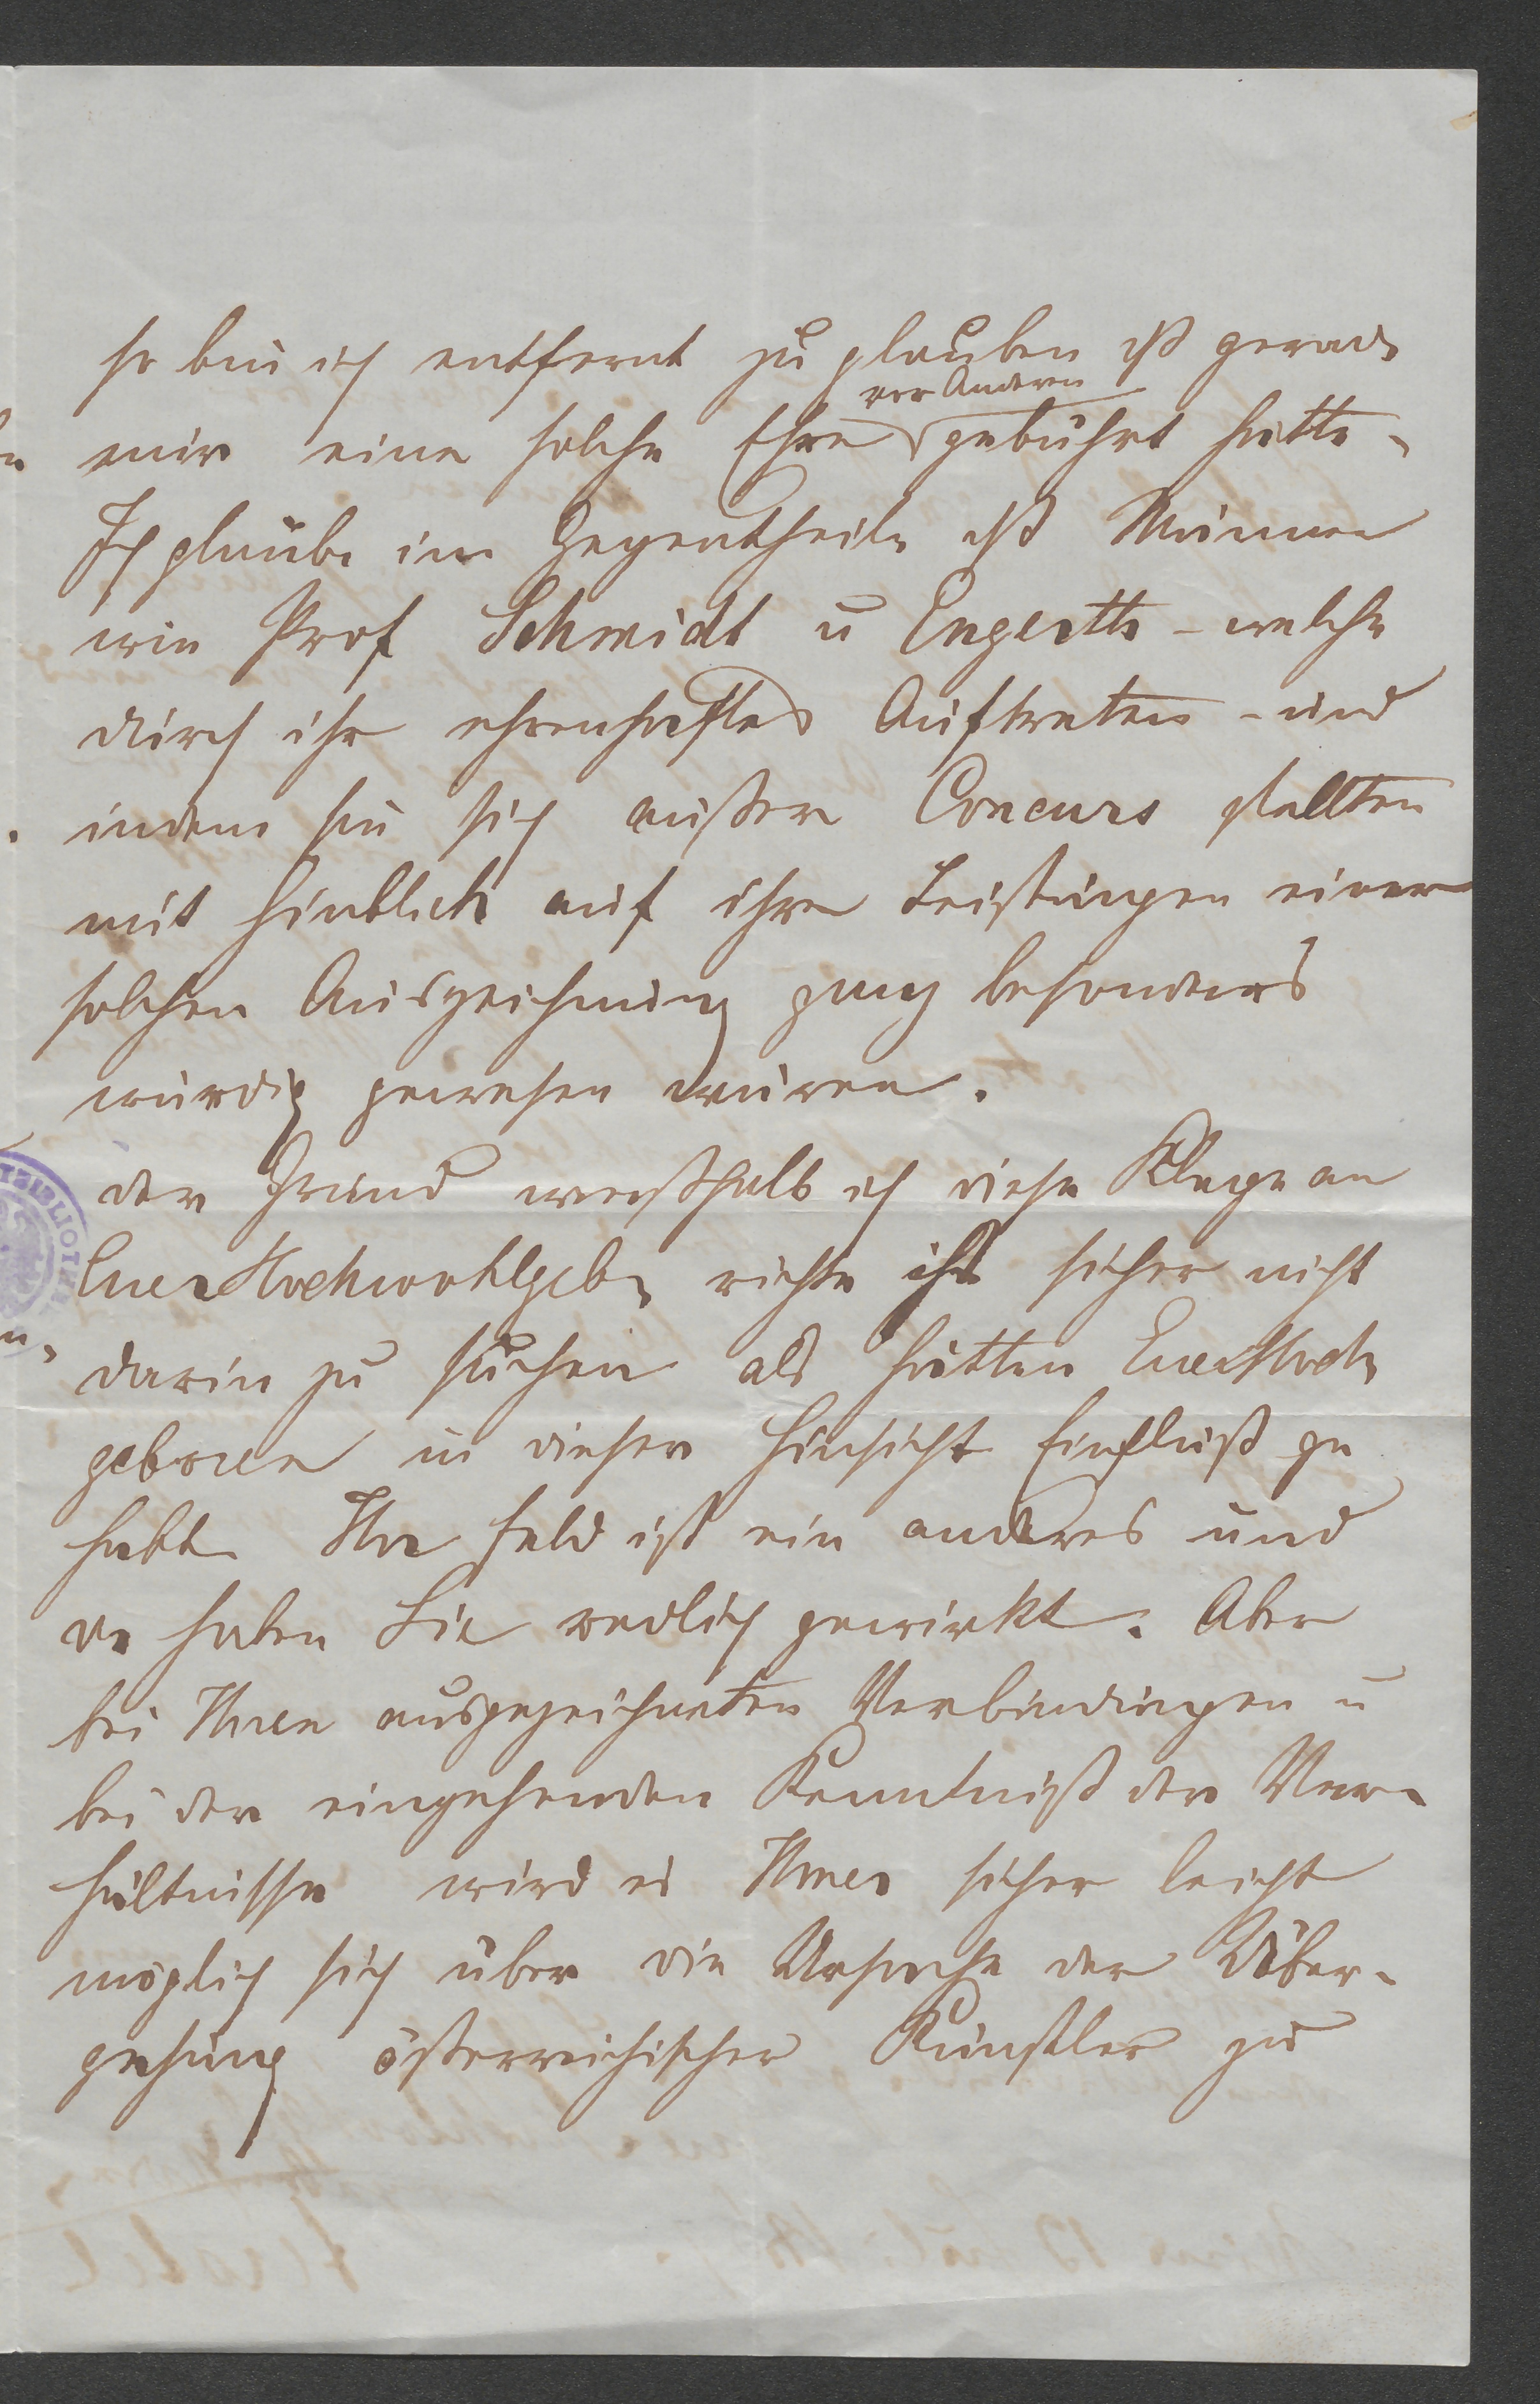 so bin ich entfernt zu glauben ds gerade
vor Andern
mir eine solche Ehre gebührt hätte.
Ich glaube im Gegentheile ds Männer
wie Prof Schmidt u Engerth – welche
durch ihr ehrenhaftes Auftreten – und
indem sie sich außer Concurs stellten
mit Hinblick auf ihre Leistungen einer
solchen Auszeichnung ganz besonders
würdig gewesen wären.
der Grund weßhalb ich diese Klage an
Euer Hochwohlgeb. richte ist sicher nicht
darin zu suchen als hätten Euer Hoch
geboren in dieser Hinsicht Einfluß ge
habt Ihr Feld ist ein anderes und
da haben Sie redlich gewirkt. Aber
bei Ihren ausgezeichneten Verbindungen u
bei der eingehenden Kenntniß der Ver-
hältnisse wird es Ihnen sicher leicht
möglich sich über die Ursache der Über-
gehung österreichischer Künstler zu